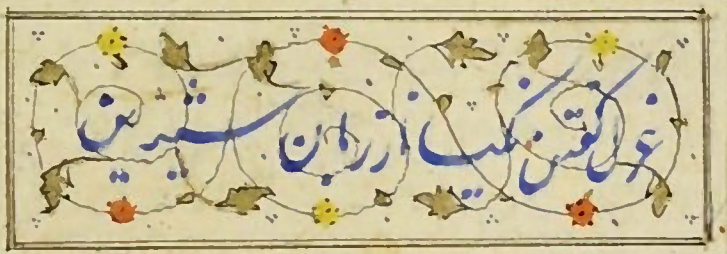 غزل گفتن نکیسا از زبان شیرین